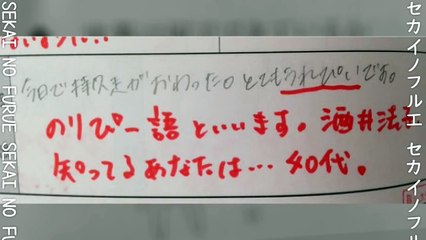 今日で持久走がおわった。とてもうれぴいです。
のりぴー語といいます。酒井法子
知ってるあなたは… 40代。
SEKAI NO FURUE SEKAI NO FURUE
セカイノフルエ セカイノフルエ